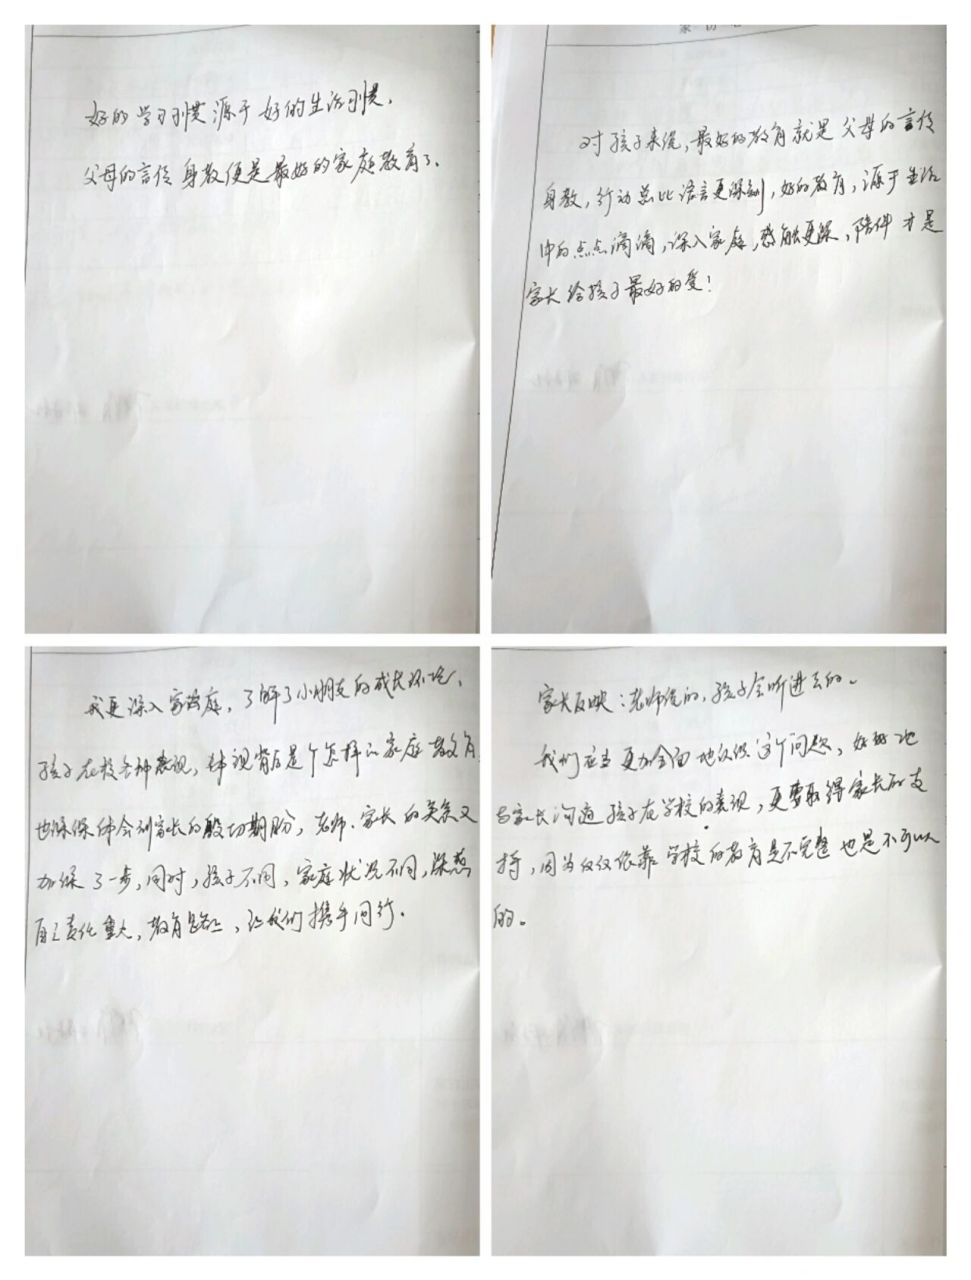 好的学习习惯源于好的生活习惯，
父母的言传身教便是最好的家庭教育了。
家访
对孩子来说，最好的教育就是父母的言传
身教，行动总比语言更深刻，好的教育，源于生活
中的点点滴滴，深入家庭，感触更深，陪伴才是
家长给孩子最好的爱！
我更深入家庭，了解了小朋友的成长环境，
孩子在校各种表现，体现背后是个怎样的家庭教育
也深深体会到家长的殷切期盼，老师、家长的关系又
加深了一步，同时，孩子不同，家庭状况不同，深感
自己责任重大，教育路上，让我们携手同行。
家长反映：老师说的，孩子会听进去的。
我们应当更加全面地认识这个问题，好好地
与家长沟通孩子在学校的表现，更要取得家长的支
持，因为仅仅依靠学校的教育是不完整也是不可以
的。